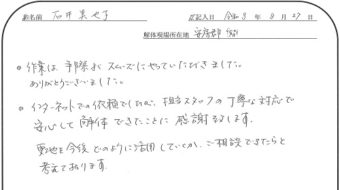 お名前 石井 美也子 ご記入日 令和5年8月27日
解体現場所在地 安房郡
• 作業は手際よくスムーズにやっていただきました。
ありがとうございました。
• インターネットでの依頼でしたが、担当スタッフの丁寧な対応で
安心して解体できたことに感謝致します。
更地を今後どのように活用していくか、ご相談できたらと
考えております。